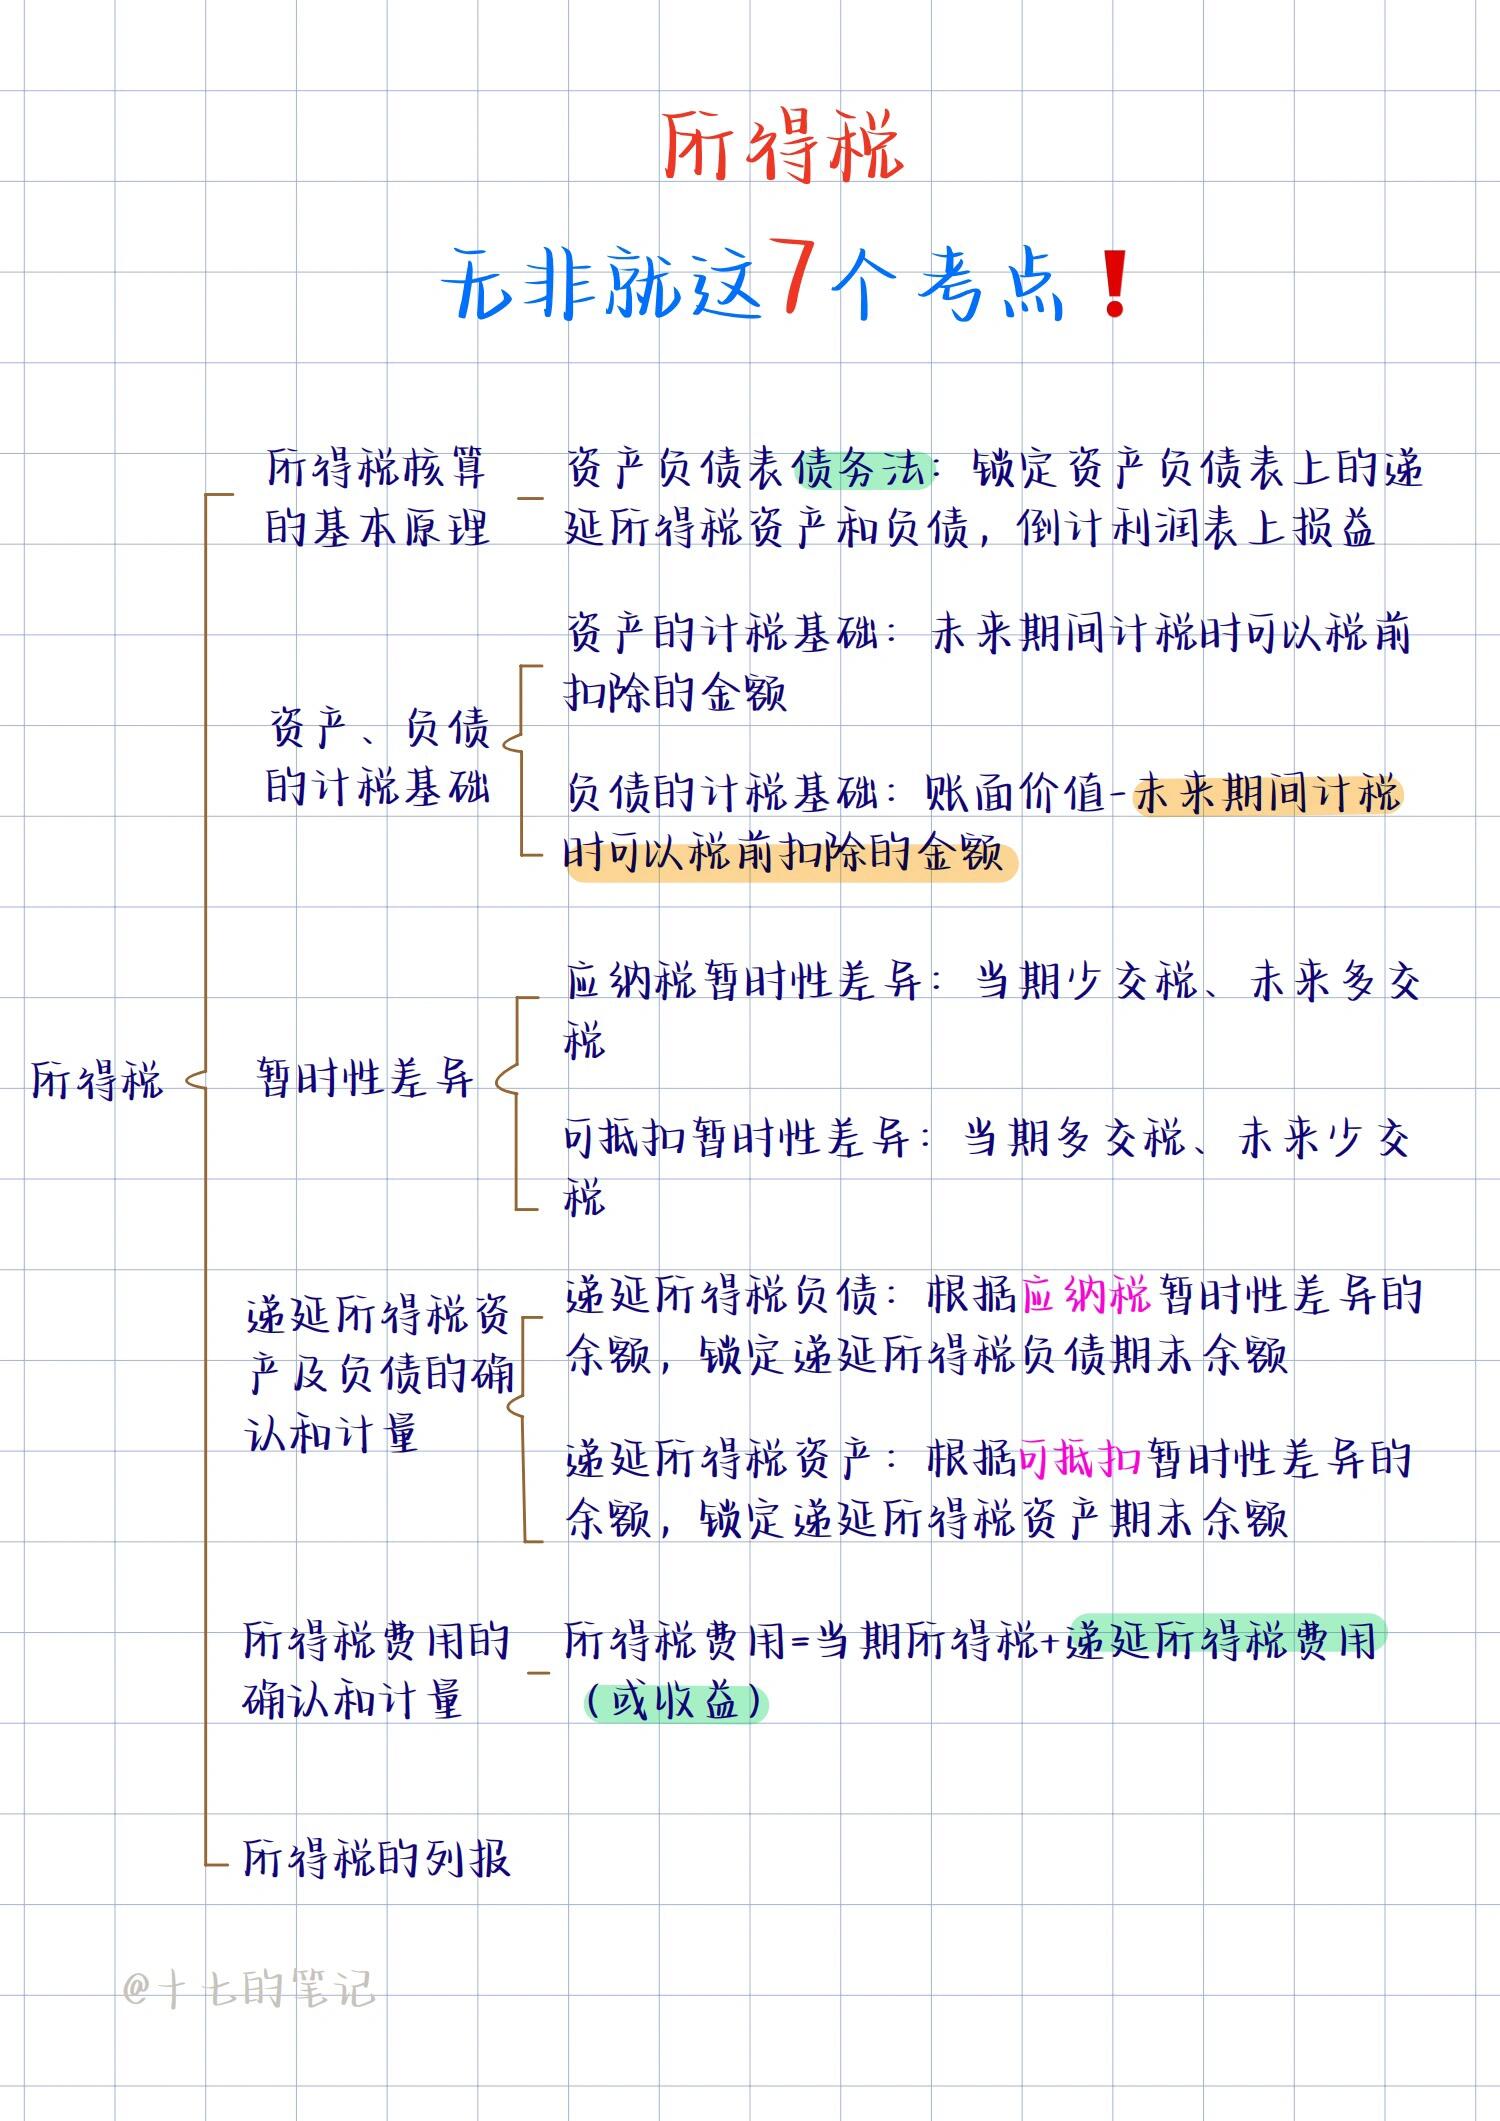 所得税
无非就这7个考点！
所得税核算
的基本原理
资产负债表债务法：锁定资产负债表上的递
延所得税资产和负债，倒计利润表上损益
资产、负债
的计税基础
资产的计税基础：未来期间计税时可以税前
扣除的金额
负债的计税基础：账面价值-未来期间计税
时可以税前扣除的金额
所得税
暂时性差异
应纳税暂时性差异：当期少交税、未来多交
税
可抵扣暂时性差异：当期多交税、未来少交
税
递延所得税资
产及负债的确
认和计量
递延所得税负债：根据应纳税暂时性差异的
余额，锁定递延所得税负债期末余额
递延所得税资产：根据可抵扣暂时性差异的
余额，锁定递延所得税资产期末余额
所得税费用的
确认和计量
所得税费用=当期所得税+递延所得税费用
（或收益）
所得税的列报
@十七的笔记